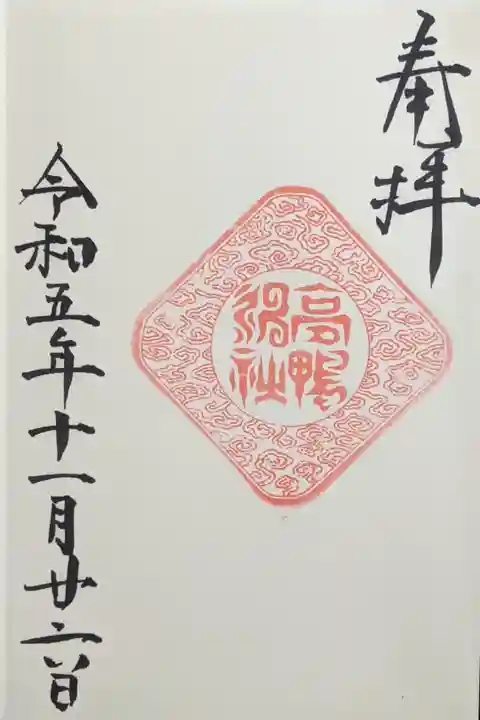 奉拝
高鴨
神社
令和五年十一月廿六日